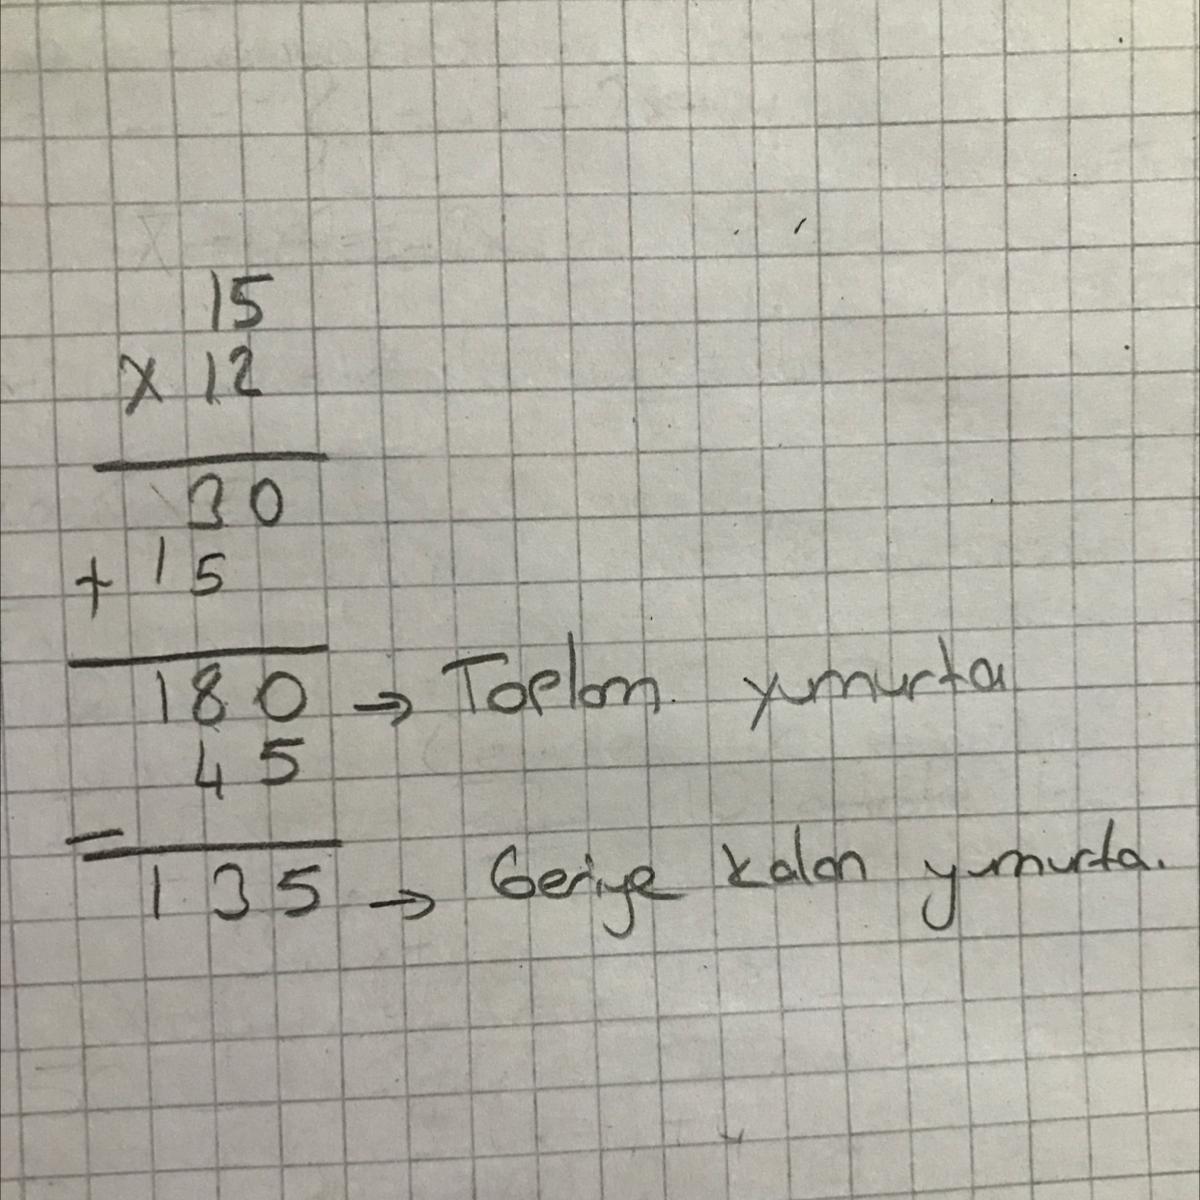 15
x 12
30
+ 15
180 → Toplam yumurta
45
−
135 → Geriye kalan yumurta.